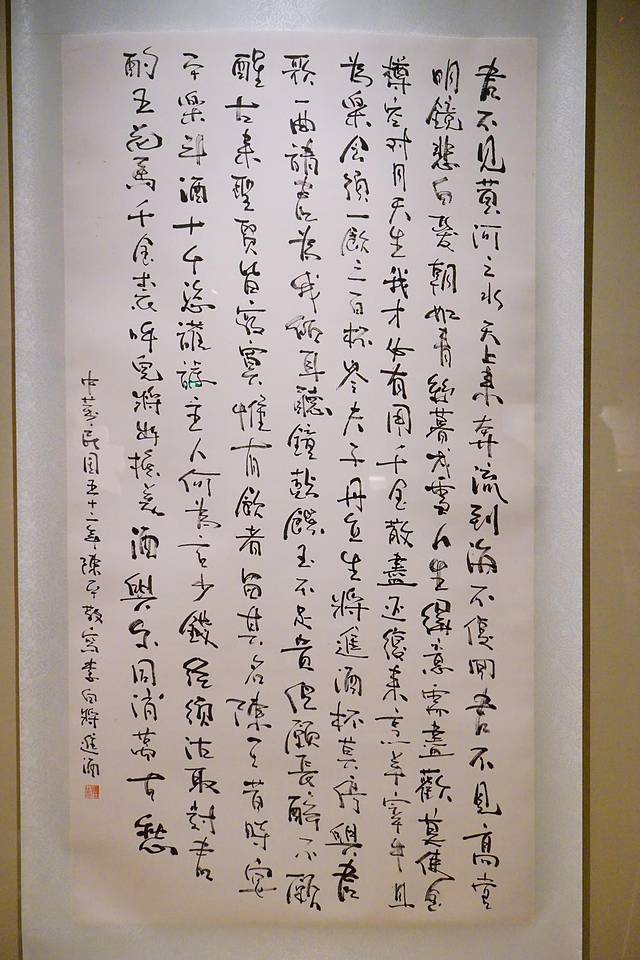 君不見黃河之水天上來奔流到海不復回君不見高堂
明鏡悲白髮朝如青絲暮成雪人生得意需盡歡莫使金
樽空对月天生我才必有用千金散盡还復來烹羊宰牛且
為樂會須一飲三百杯岑夫子丹丘生將進酒杯莫停與君
歌一曲請君為我傾耳聽鐘鼓饌玉不足貴但願長醉不願
醒古來聖賢皆寂寞惟有飲者留其名陳王昔時宴
平樂斗酒十千恣讙謔主人何為言少錢徑須沽取對君
酌五花馬千金裘呼兒將出換美酒與尔同消萬古愁
中華民國五十二年陳平敬寫李白將進酒